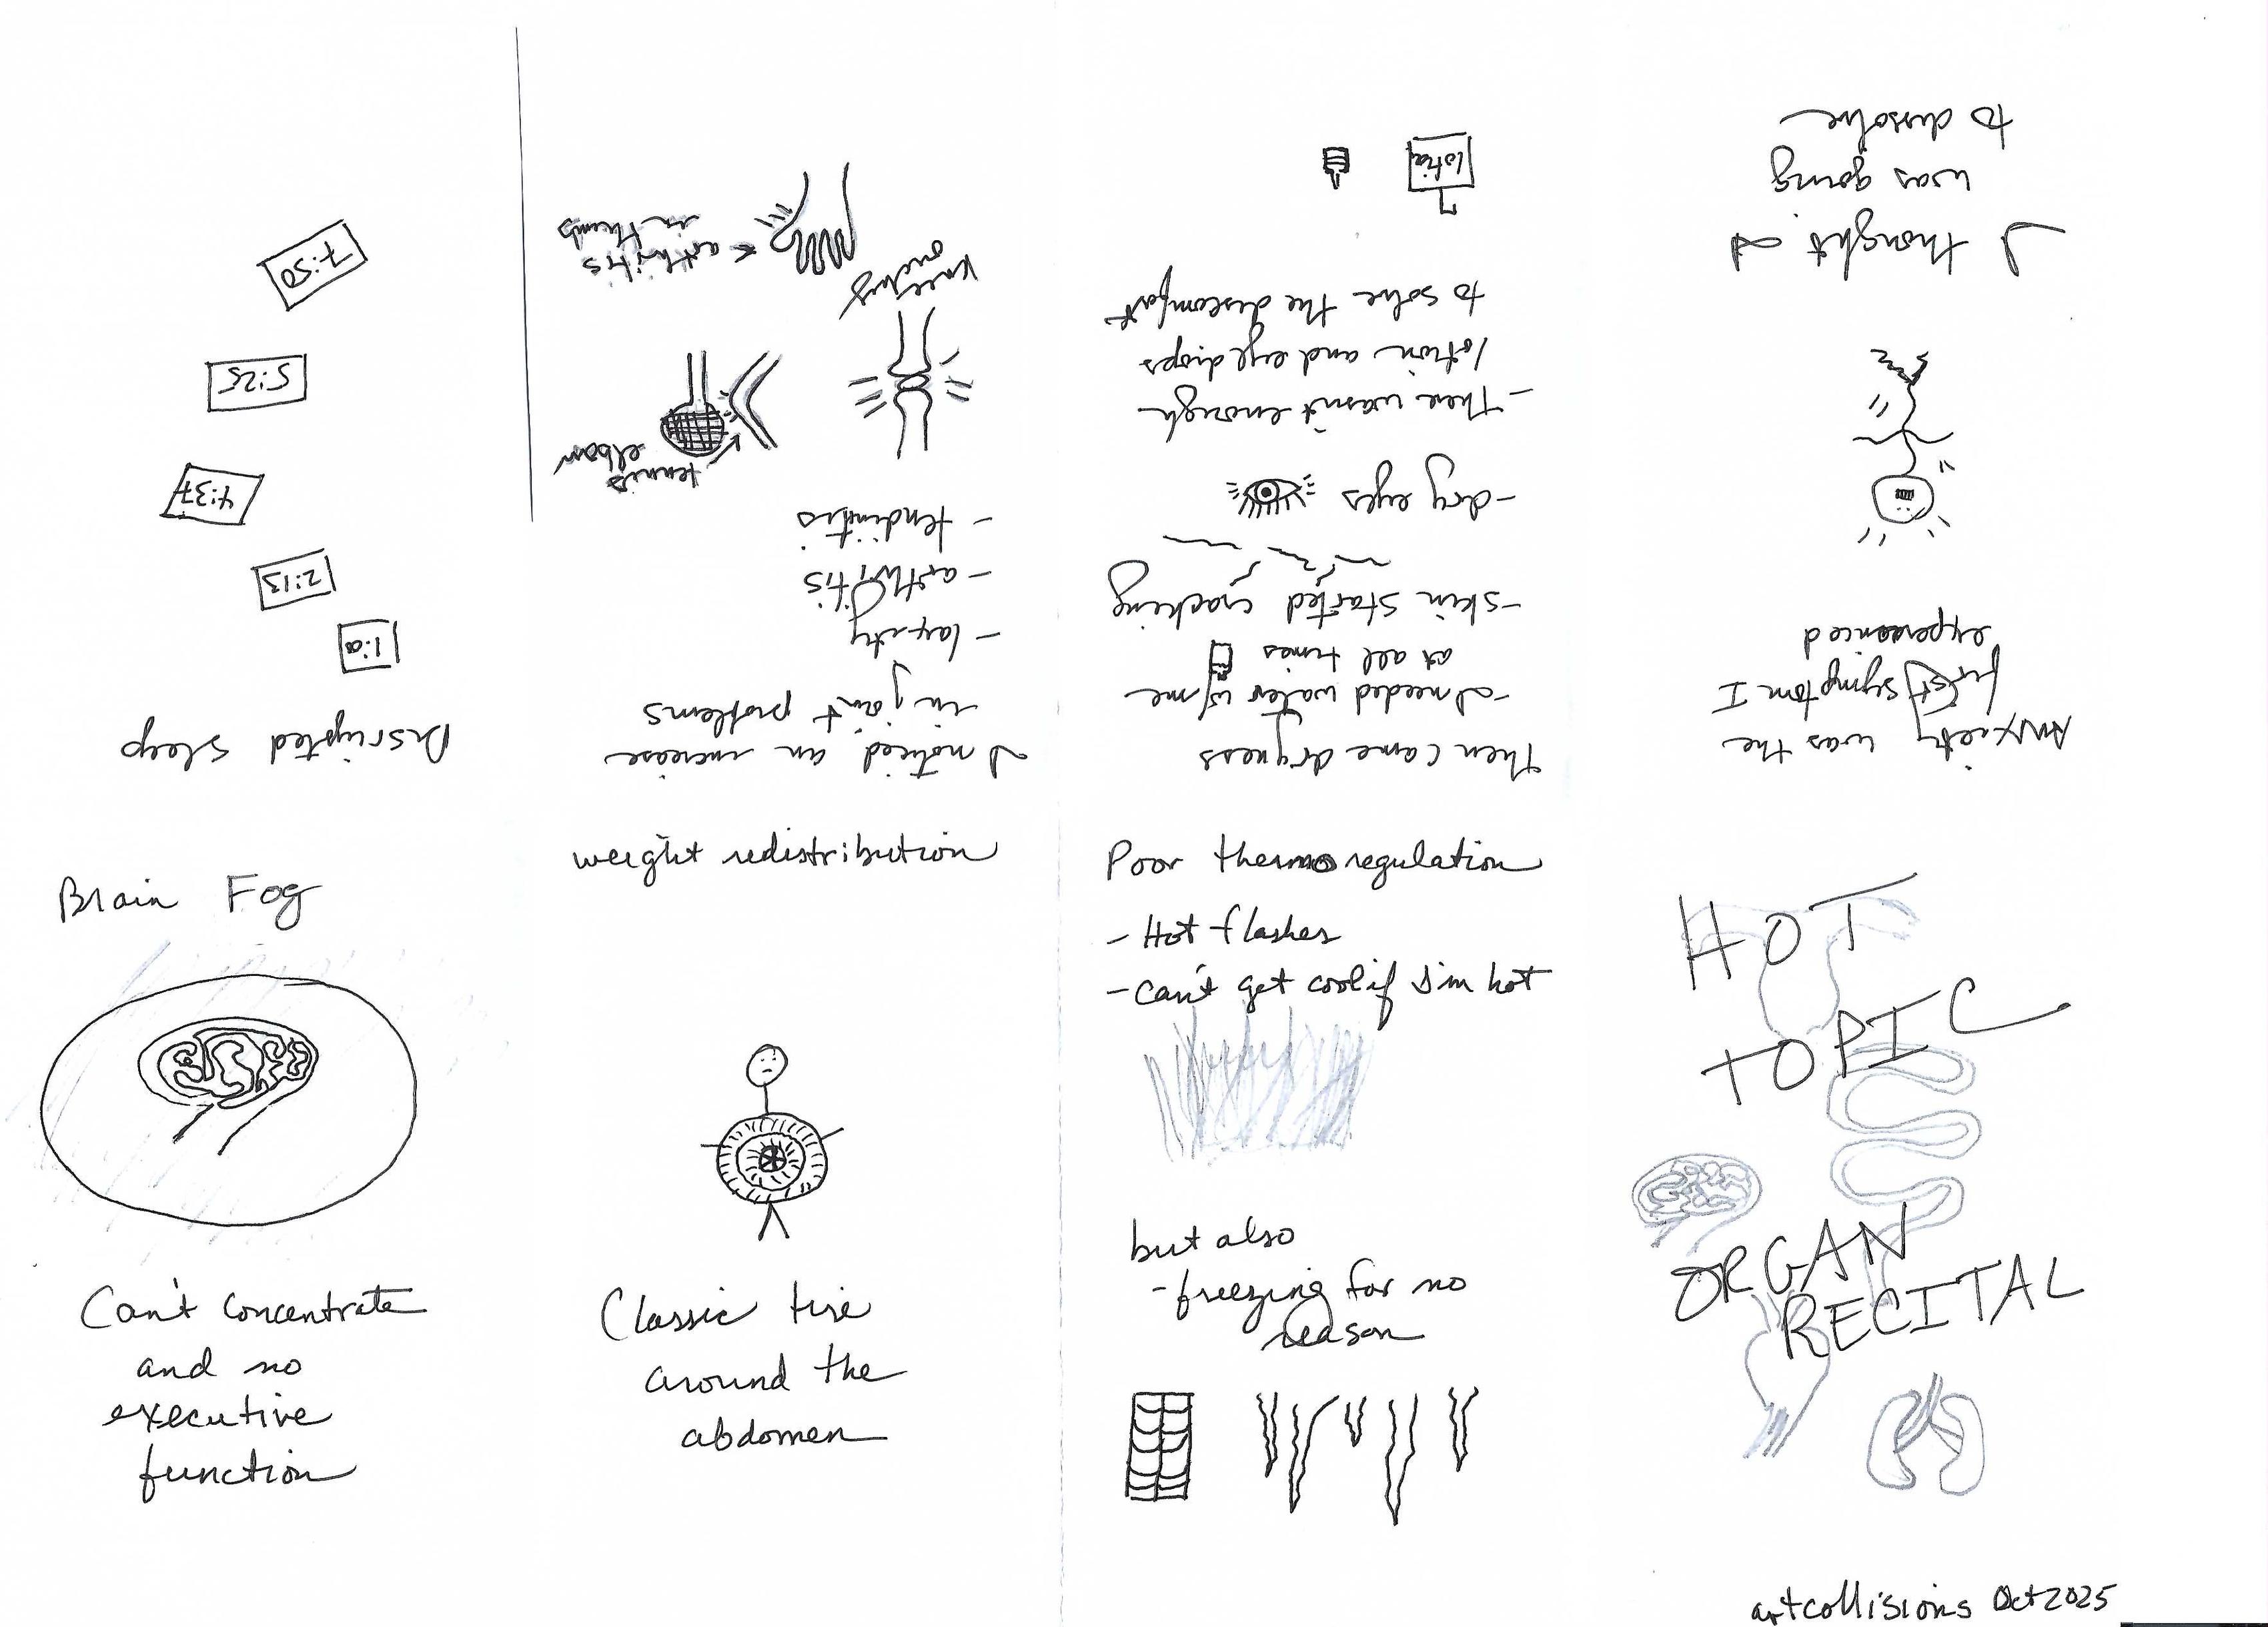 HOT
TOPIC
ORGAN
RECITAL
artcollisions Oct 2025
Anxiety was the
first symptom I
experienced
I thought I
was going
to dissolve
Then came dryness
- I needed water w/me
at all times
- skin started cracking
- dry eyes
- There wasn't enough
lotion and eyedrops
to solve the discomfort
lotion
I noticed an increase
in joint problems
- laxity
- arthritis
- tendinitis
tennis
elbow
← arthritis
in thumb
Disrupted Sleep
2:13
4:37
5:25
7:50
Brain Fog
Can't concentrate
and no
executive
function
weight redistribution
Classic tire
around the
abdomen
Poor thermoregulation
- Hot flashes
- can't get cool if I'm hot
but also
- freezing for no
reason